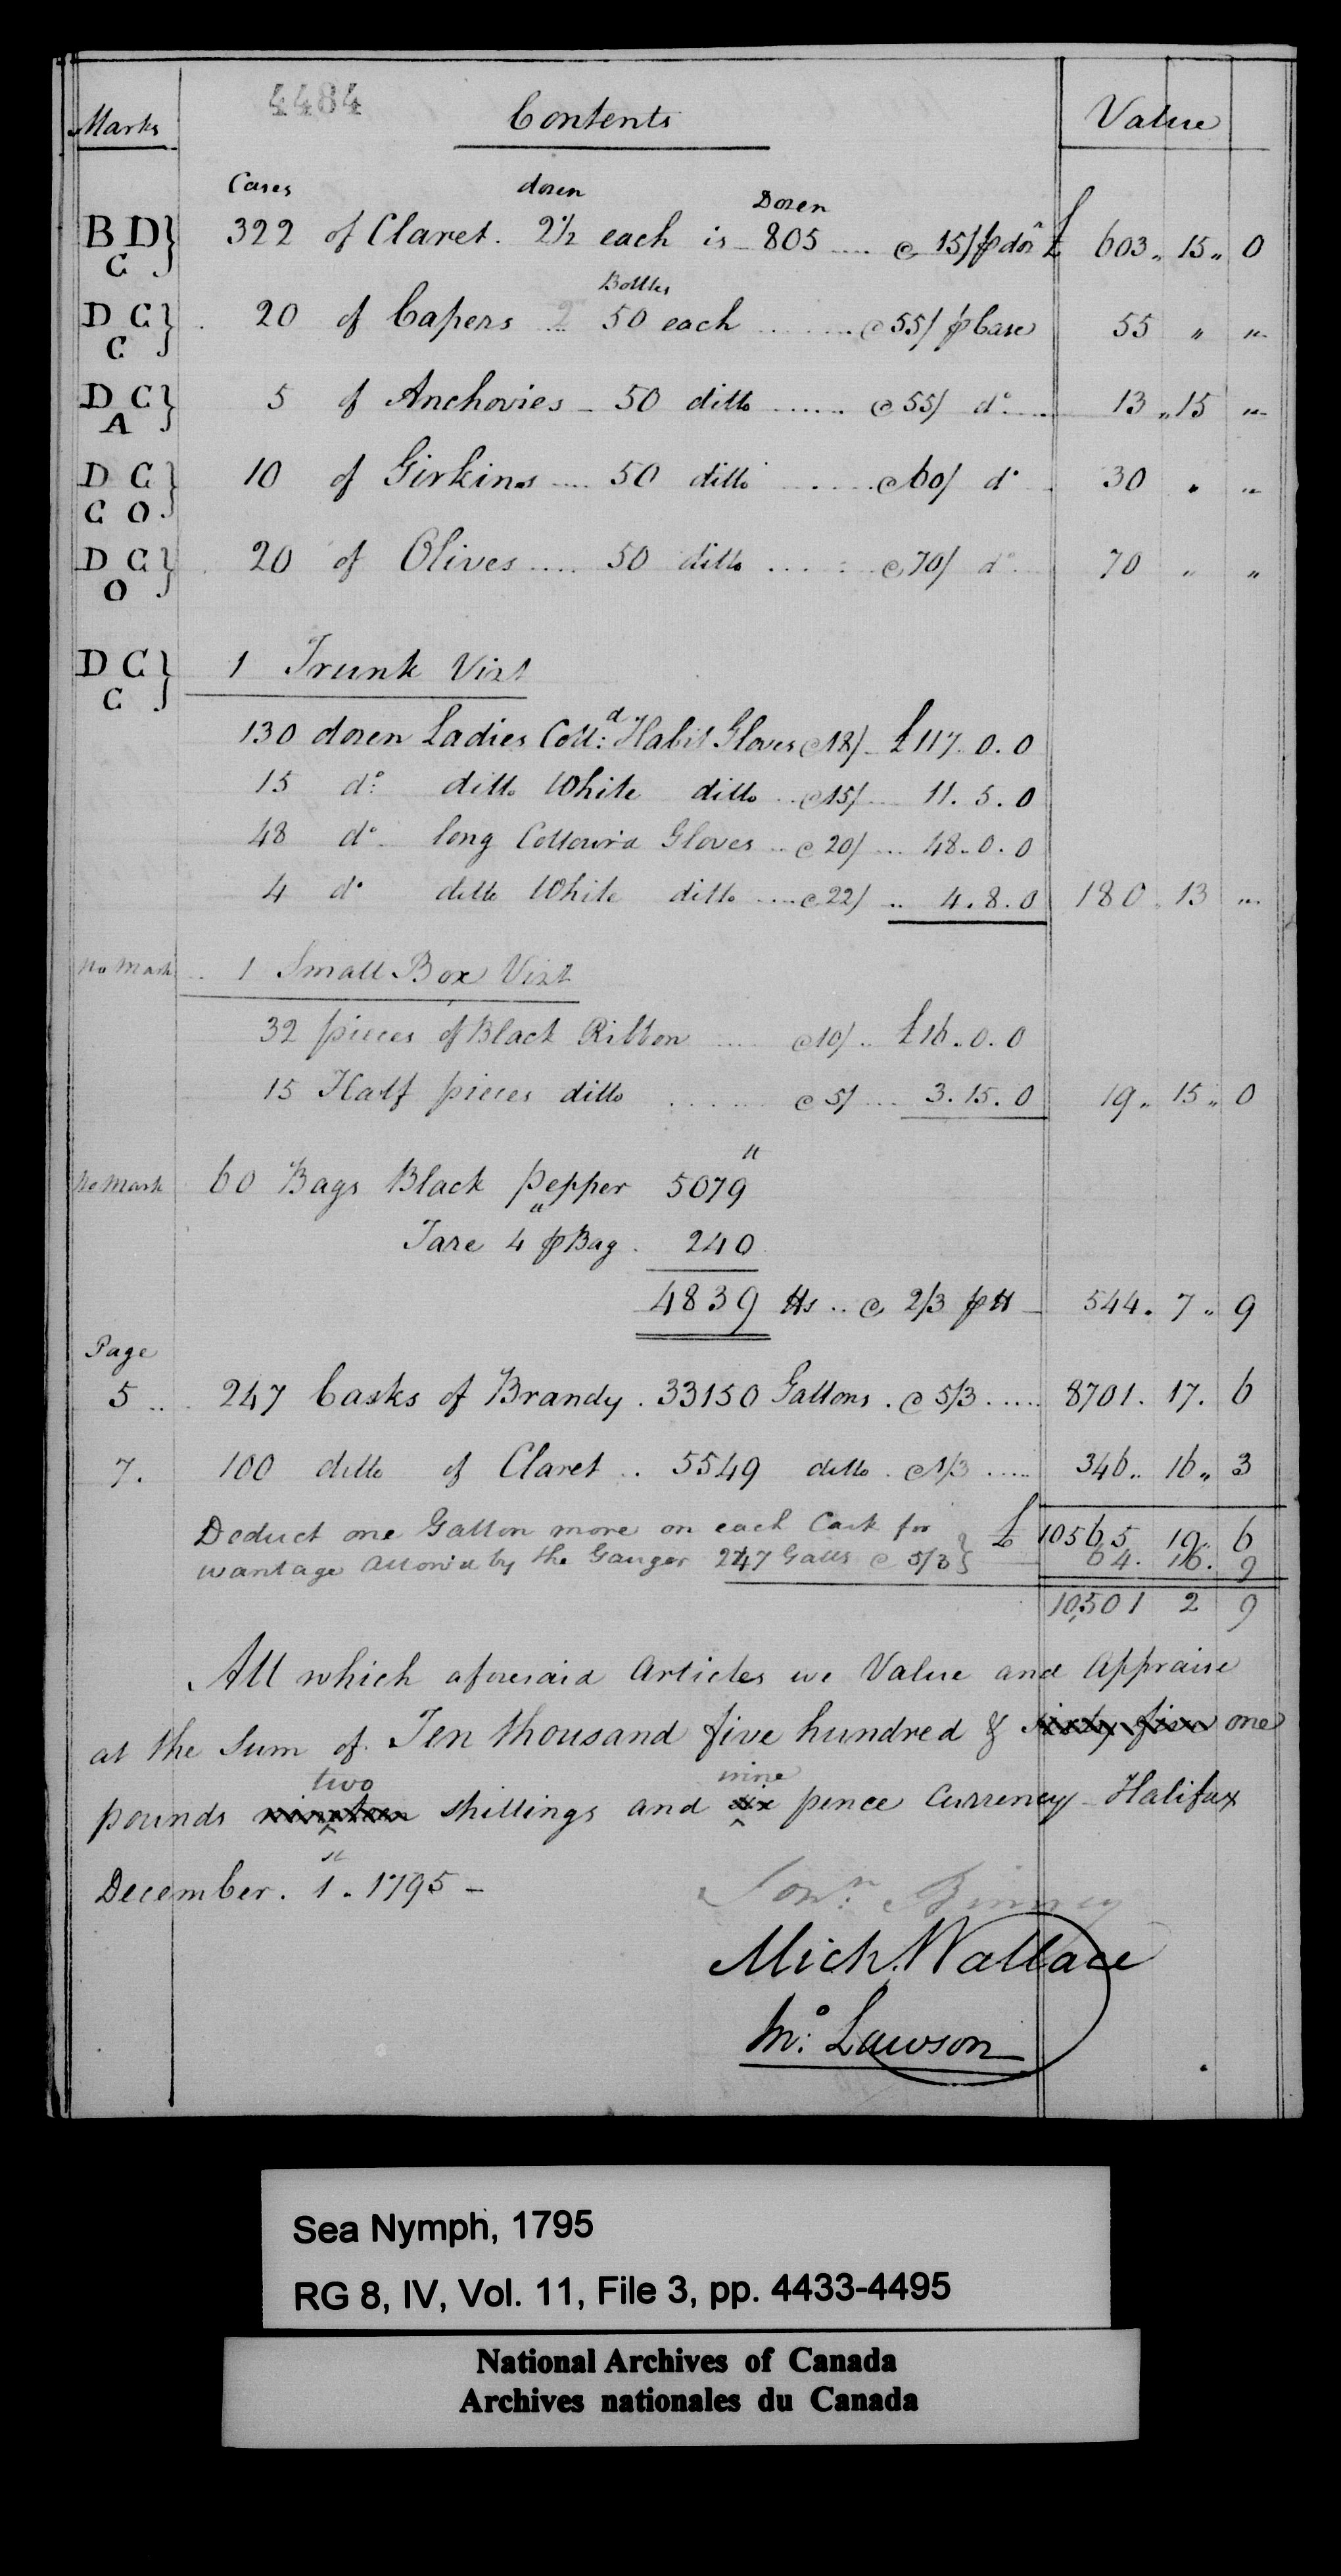 4484
Marks Contents Value
Cases dozen Dozen
B D} 322 of Claret. 2½ each is 805 .... @ 15/ ℔ doz £ 603 „ 15 „ 0
C
Bottles
D C} 20 of Capers ... 50 each ........ @ 55/ ℔ Case 55 „ „
C
D C} 5 of Anchovies - 50 ditto ....... @ 55/ d° 13 „ 15 „
A
D C} 10 of Girkins .... 50 ditto ...... @ 60/ d° 30 „ „
C O
D C} 20 of Olives ..... 50 ditto ..... @ 70/ d° 70 „ „
O
D C} 1 Trunk Vizt
C
130 dozen Ladies Coll:d Habit Gloves @ 18/ £117. 0. 0
15 d°: ditto White ditto .. @ 15/ .... 11. 5. 0
48 d° long Collour'd Gloves .. @ 20/ ... 48. 0. 0
4 d° ditto White ditto .... @ 22/ .. 4. 8. 0 180 13 „
No Mark .. 1 Small Box Vizt
32 pieces of Black Ribbon .... @ 10/ .. £16. 0. 0
15 Half pieces ditto ....... @ 5/ .... 3. 15. 0 19 „ 15 „ 0
No Mark 60 Bags Black Pepper 5079 lb
Tare 4 lb ℔ Bag . 240
4839 lbs .. @ 2/3 ℔ lb 544. 7 „ 9
Page
5 ... 247 Casks of Brandy . 33150 Gallons . @ 5/3 ..... 8701. 17. 6
7. 100 ditto of Claret .. 5549 ditto . @ 1/3 ..... 346 „ 16 „ 3
Deduct one Gallon more on each Cask for } £ 10565 19 „ 6
wantage Allow'd by the Gauger 247 Galls @ 5/3 } 64. 16. 9
10,501 2 9
All which aforesaid Articles we Value and Appraise
at the Sum of Ten thousand five hundred & sixty five one
two nine
pounds nineteen shillings and six pence Currency Halifax
December. 1st. 1795 -
Jonn: Binney
Mich. Wallace
Wm: Lawson
Sea Nymph, 1795
RG 8, IV, Vol. 11, File 3, pp. 4433-4495
National Archives of Canada
Archives nationales du Canada